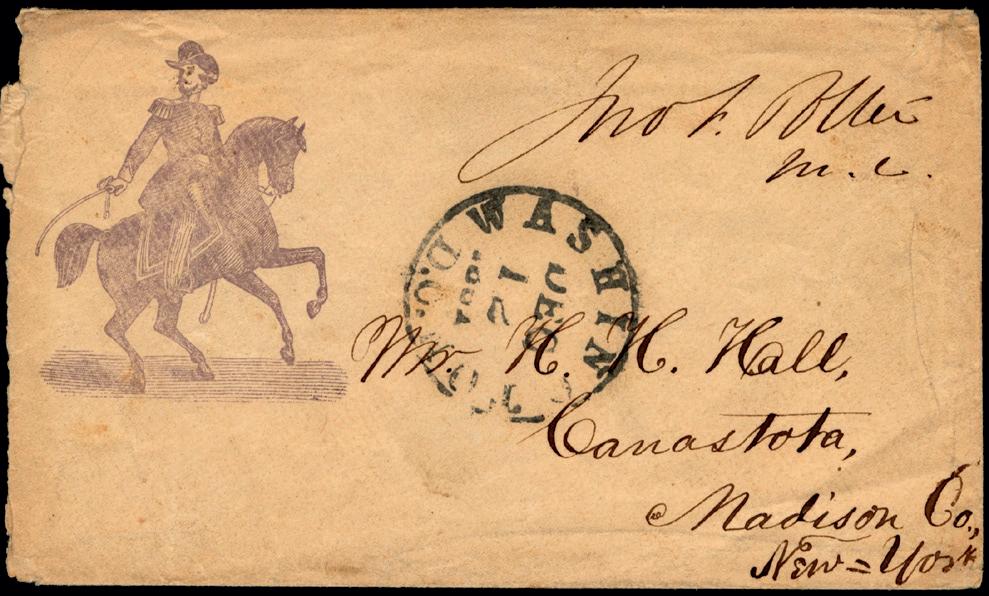 Jno F. Potter
M. C.
WASHINGTON D.C.
DEC
1
Mr. H. H. Hall,
Canastota,
Madison Co.,
New=York